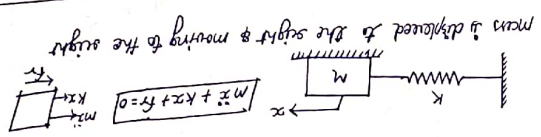 K
M
x
mẍ + kx + fr = 0
mẍ
kx
fr
mass is displaced to the right & moving to the right